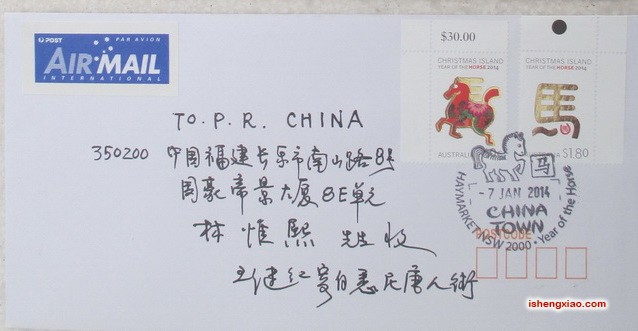 POST PAR AVION
AIR MAIL
INTERNATIONAL
$30.00
CHRISTMAS ISLAND
YEAR OF THE HORSE 2014
AUSTRALIA
CHRISTMAS ISLAND
YEAR OF THE HORSE 2014
馬
$1.80
马
-7 JAN 2014
CHINA
TOWN
HAYMARKET NSW 2000 · Year of the Horse
POSTCODE
TO. P. R. CHINA
350200 中国福建长乐市南山路8号
国豪帝景大厦8E单元
林惟熙 先生 收
王建红寄自悉尼唐人街
ishengxiao.com